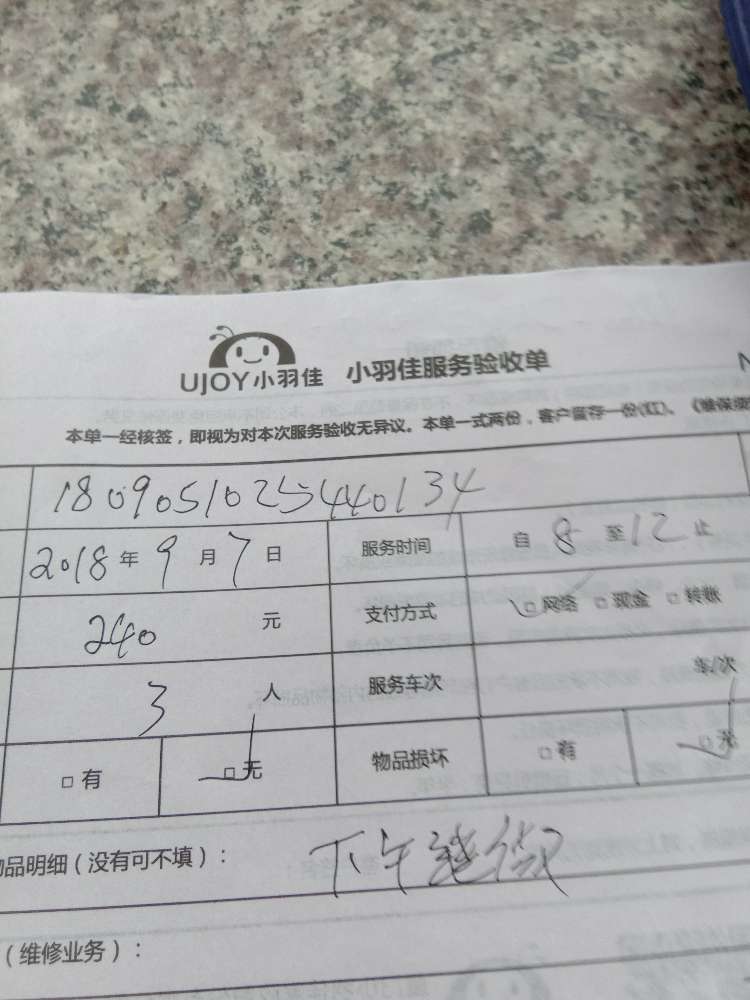 UJOY小羽佳 小羽佳服务验收单
本单一经核签，即视为对本次服务验收无异议。本单一式两份，客户留存一份(红)、《维保
1809051025440134
2018年9月7日 服务时间 自8至12止
240元 支付方式 □网络 □现金 □转账
3人 服务车次 车/次
□有 □无 物品损坏 □有 □无
品明细（没有可不填）： 下午继续
（维修业务）：